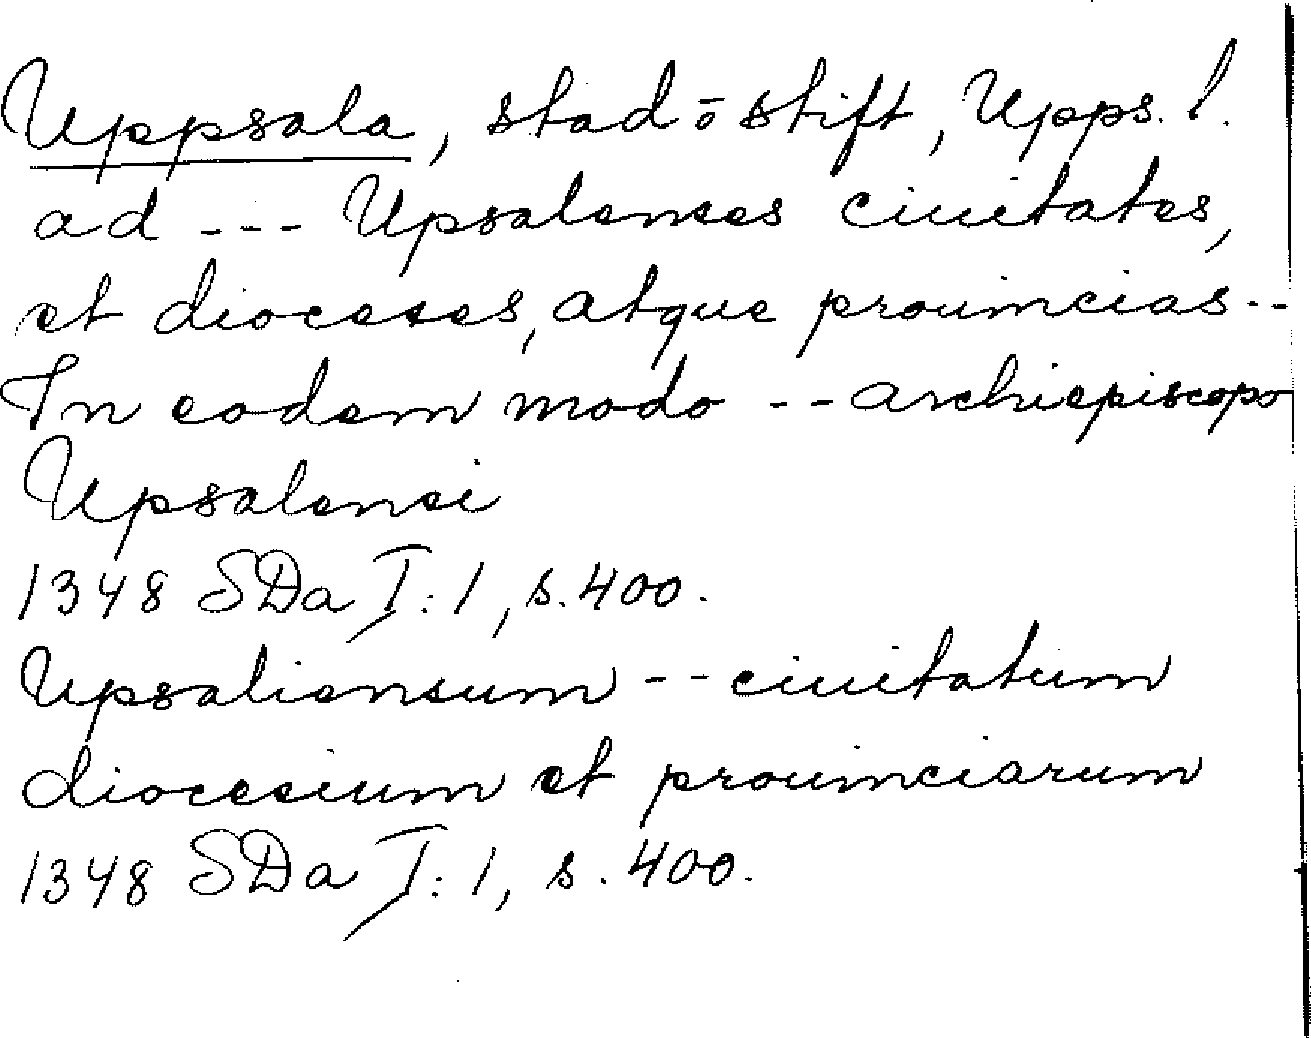 Uppsala, stad o stift, Upps. l.
ad --- Upsalenses ciuitates,
et dioceses, atque prouincias--
In eodem modo -- archiepiscopo
Upsalensi
1348 SDa I:1, s.400.
Upsaliensum -- ciuitatum
diocesium et prouinciarum
1348 SDa I:1, s.400.